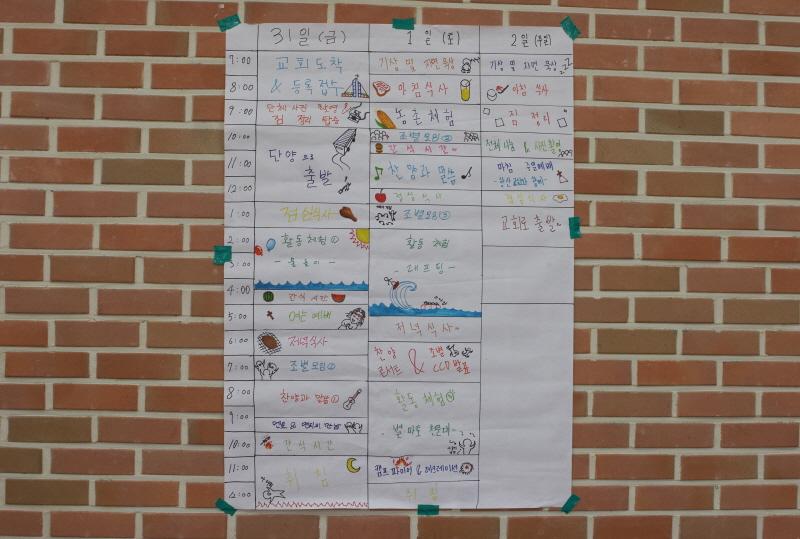 31일 (금)
1일 (토)
2일 (주일)
7:00
8:00
9:00
10:00
11:00
12:00
1:00
2:00
3:00
4:00
5:00
6:00
7:00
8:00
9:00
10:00
11:00
교회도착
& 등록접수
단체 사진 촬영 &
짐 정리 탑승
단양으로
출발
점심식사
활동체험①
- 물놀이 -
간식 시간
여는 예배
저녁식사
조별모임①
찬양과 말씀①
간식 시간
취침
기상 및 자연묵상
아침식사
농촌체험
조별모임②
간식 시간
찬양과 말씀
점심식사
조별모임③
활동 체험
- 래프팅 -
저녁식사
찬양
콘서트
&
조별
CCD발표
활동체험
별마로 천문대
캠프파이어 & 레크레이션
취침
기상 및 자연 묵상
아침 식사
짐 정리
전체나눔 & 사진촬영
마침 주일예배
점심식사
교회로 출발